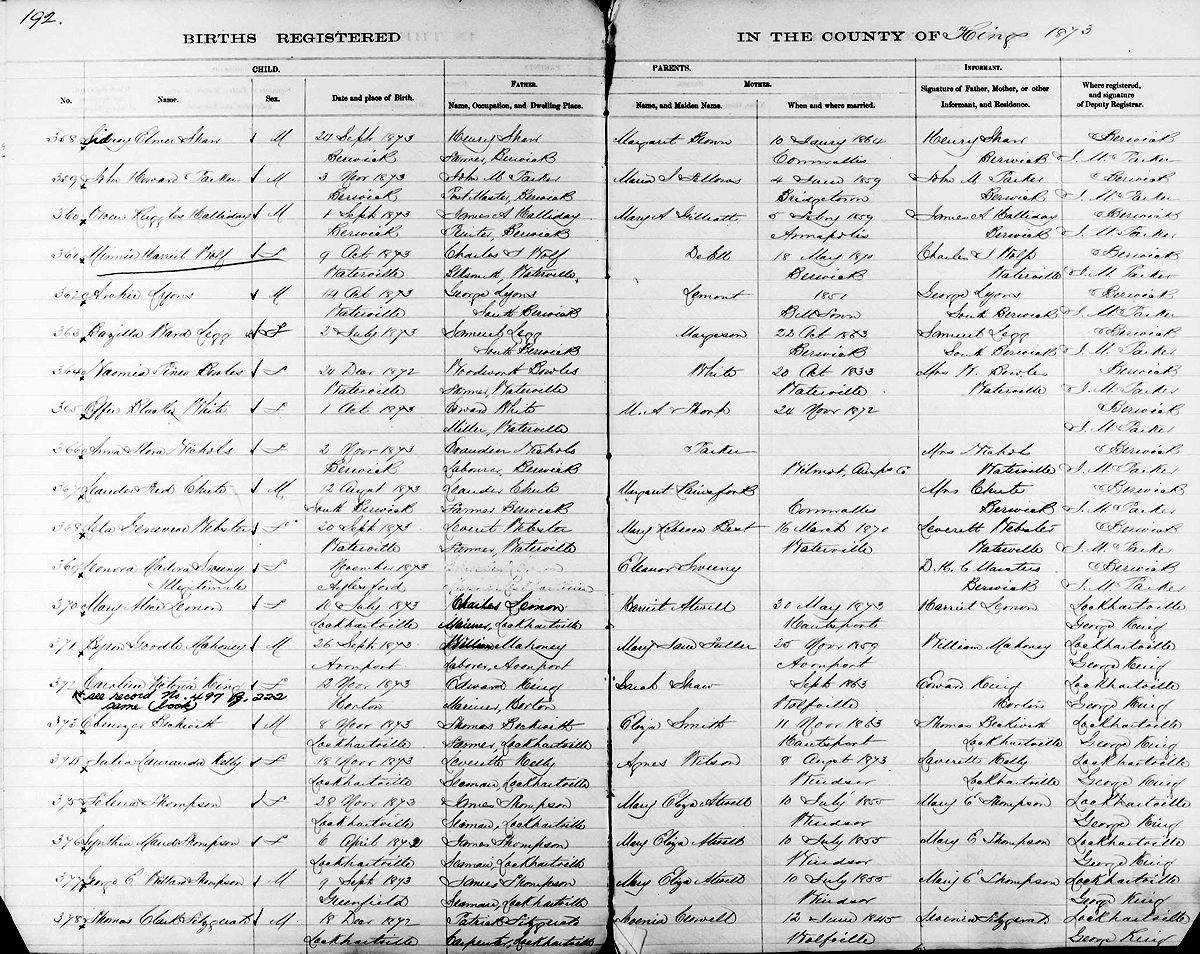 192.
BIRTHS REGISTERED IN THE COUNTY OF Kings 1873
CHILD. PARENTS. INFORMANT.
FATHER. MOTHER.
No. Name. Sex. Date and place of Birth. Name, Occupation, and Dwelling Place. Name, and Maiden Name. When and where married. Signature of Father, Mother, or other Informant, and Residence. Where registered, and signature of Deputy Registrar.
358 Sidney Elmer Shaw M 24 Sept 1873 Henry Shaw Margaret Brown 10 1864 Henry Shaw Berwick
Berwick Farmer, Berwick Cornwallis Berwick J. M. Parker
359 John Howard Parker M 3 Nov 1873 John M Parker Maria J Fellows 4 June 1859 John M Parker Berwick
Berwick Post Master, Berwick Bridgetown Berwick J. M. Parker
360 Owen Ruggles Halliday M 1 Sept 1873 James A Halliday Mary A Gilliatt 5 Feby 1859 James A Halliday Berwick
Berwick Berwick Annapolis Berwick J. M. Parker
361 Minnie Harriet Wolf F 9 Oct 1873 Charles J Wolf 18 May 1870 Charles J Wolf Berwick
Waterville Waterville Berwick Waterville J. M. Parker
362 Archie Lyons M 14 Oct 1873 George Lyons Lemont 1851 George Lyons Berwick
Waterville South Berwick South Berwick J. M. Parker
363 Ward Legg F 2 July 1873 Samuel Legg Margeson 22 Oct 1863 Samuel Legg Berwick
South Berwick Berwick South Berwick J. M. Parker
364 Naomia Bowles F 24 Decr 1872 Woodworth Bowles White 20 Oct 1833 Mrs W. Bowles Berwick
Waterville Farmer, Waterville Waterville Waterville J. M. Parker
365 White F 1 Oct 1873 White M. A 24 Novr 1872 Berwick
Miller, Waterville J. M. Parker
366 Anna Flora Nichols F 2 Novr 1873 Nichols Parker Mrs Nichols Berwick
Berwick Labourer, Berwick Wilmot, Waterville J. M. Parker
367 Leander Chute M 12 August 1873 Leander Chute Margaret Mrs Chute Berwick
South Berwick Farmer Berwick Cornwallis Berwick J. M. Parker
368 Genevieve Webster F 20 Sept 1873 Leverett Webster Mary Rebecca Best 16 March 1870 Leverett Webster Berwick
Waterville Farmer, Waterville Waterville Waterville J. M. Parker
369 Leonora Sweeny F November 1873 Eleanor Sweeny Berwick
Illegitimate Aylesford Berwick J. M. Parker
370 Mary Alice Lemon F 10 July 1873 Charles Lemon Harriet Atwell 30 May 1873 Harriet Lemon Lockhartville
Lockhartville Mariner, Lockhartville Hantsport George King
371 Byron Goodle Mahoney M 26 Sept 1873 William Mahoney Mary Jane Fuller 25 Novr 1859 William Mahoney Lockhartville
Avonport Laborer, Avonport Avonport George King
372 Caroline Victoria King F 12 Novr 1873 Edward King Sarah Shaw Sept 1863 Edward King Lockhartville
* see record No. 497 Pg. 222 Horton Mariner, Horton Wolfville Horton George King
same (book)
373 Ebenezer Beckwith M 8 Novr 1873 Thomas Beckwith Eliza Smith 11 Novr 1863 Thomas Beckwith Lockhartville
Lockhartville Farmer, Lockhartville Hantsport Lockhartville George King
374 Julia Kelly F 18 Novr 1873 Leverett Kelly Agnes Wilson 9 August 1873 Leverett Kelly Lockhartville
Lockhartville Seaman, Lockhartville Windsor Lockhartville George King
375 Thompson F 29 Novr 1873 James Thompson Mary Eliza Atwell 10 July 1855 Mary E Thompson Lockhartville
Lockhartville Seaman, Lockhartville Windsor George King
376 Cynthia Maud Thompson F 6 April 1872 James Thompson Mary Eliza Atwell 10 July 1855 Mary E Thompson Lockhartville
Lockhartville Seaman, Lockhartville Windsor George King
377 George E Willard Thompson M 9 Sept 1873 James Thompson Mary Eliza Atwell 10 July 1855 Mary E Thompson Lockhartville
Greenfield Seaman, Lockhartville Windsor George King
378 Thomas Clark Fitzgerald M 18 Decr 1872 Patrick Fitzgerald 12 June 1845 Fitzgerald Lockhartville
Lockhartville Carpenter, Lockhartville Wolfville George King